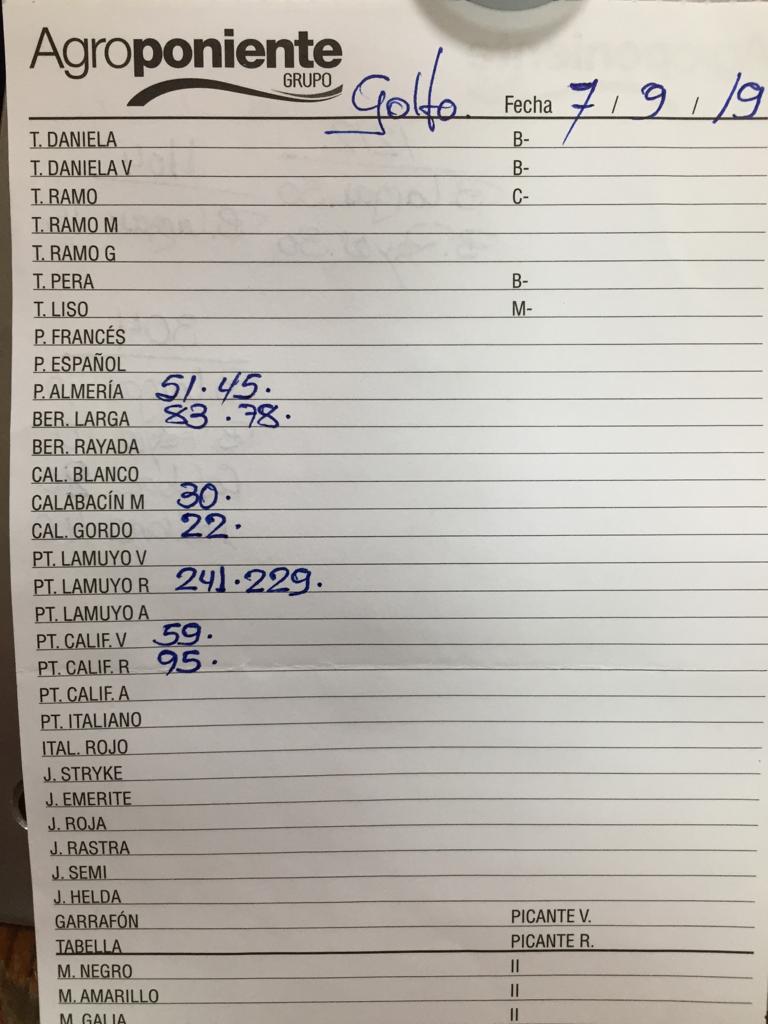 Agroponiente
GRUPO
Golfo. Fecha 7 / 9 / 19
T. DANIELA B-
T. DANIELA V B-
T. RAMO C-
T. RAMO M
T. RAMO G
T. PERA B-
T. LISO M-
P. FRANCÉS
P. ESPAÑOL
P. ALMERÍA 51. 45.
BER. LARGA 83 . 78.
BER. RAYADA
CAL. BLANCO
CALABACÍN M 30.
CAL. GORDO 22.
PT. LAMUYO V
PT. LAMUYO R 241. 229.
PT. LAMUYO A
PT. CALIF. V 59.
PT. CALIF. R 95.
PT. CALIF. A
PT. ITALIANO
ITAL. ROJO
J. STRYKE
J. EMERITE
J. ROJA
J. RASTRA
J. SEMI
J. HELDA
GARRAFÓN PICANTE V.
TABELLA PICANTE R.
M. NEGRO II
M. AMARILLO II
M. GALIA II